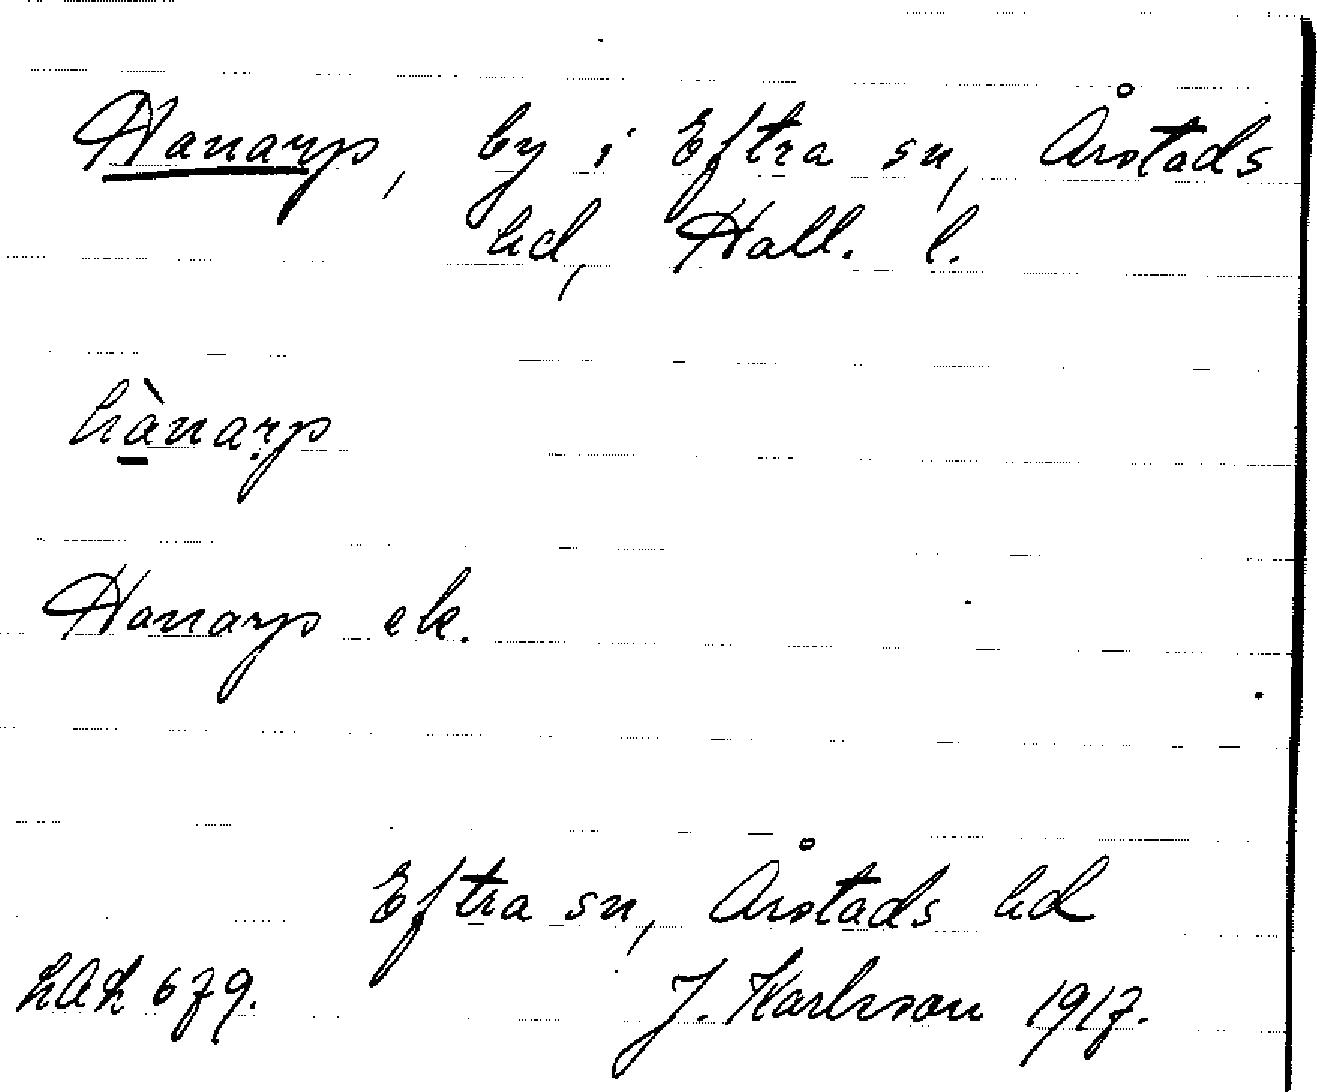 Hanarp, by i Eftra sn, Årstads
hd, Hall. l.
hànarp
Hanarp ek.
Eftra sn, Årstads hd
LAL 679. J. Karlsson 1917.